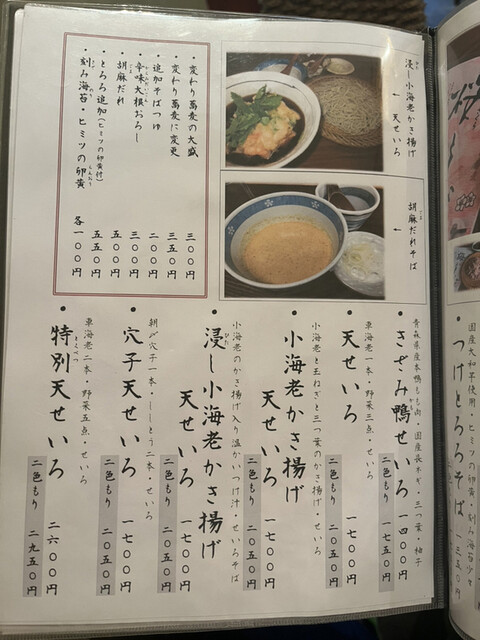 国産大和芋使用・ヒミツの卵黄・刻み海苔少々
・つけとろろそば 一三五〇円
浸し小海老かき揚げ
← 天せいろ
胡麻だれそば
←
・変わり蕎麦の大盛 三〇〇円
・変わり蕎麦に変更 三五〇円
・追加そばつゆ 二〇〇円
・辛味大根おろし 三〇〇円
・胡麻だれ 五〇〇円
・とろろ追加(ヒミツの卵黄付) 五五〇円
・刻み海苔・ヒミツの卵黄 各一〇〇円
青森県産本鴨もも肉・国産長ネギ・三つ葉・柚子
・きざみ鴨せいろ 一四〇〇円
二色もり 一七五〇円
車海老一本・野菜三点・せいろ
・天せいろ 一七〇〇円
二色もり 二〇五〇円
小海老と玉ねぎと三つ葉のかき揚げ・せいろ
・小海老かき揚げ
天せいろ 一七〇〇円
二色もり 二〇五〇円
小海老のかき揚げ入り温かいつけ汁・せいろそば
・浸し小海老かき揚げ
天せいろ 一七〇〇円
二色もり 二〇五〇円
朝〆穴子一本・ししとう二本・せいろ
・穴子天せいろ 一七〇〇円
二色もり 二〇五〇円
車海老二本・野菜五点・せいろ
・特別天せいろ 二六〇〇円
二色もり 二九五〇円